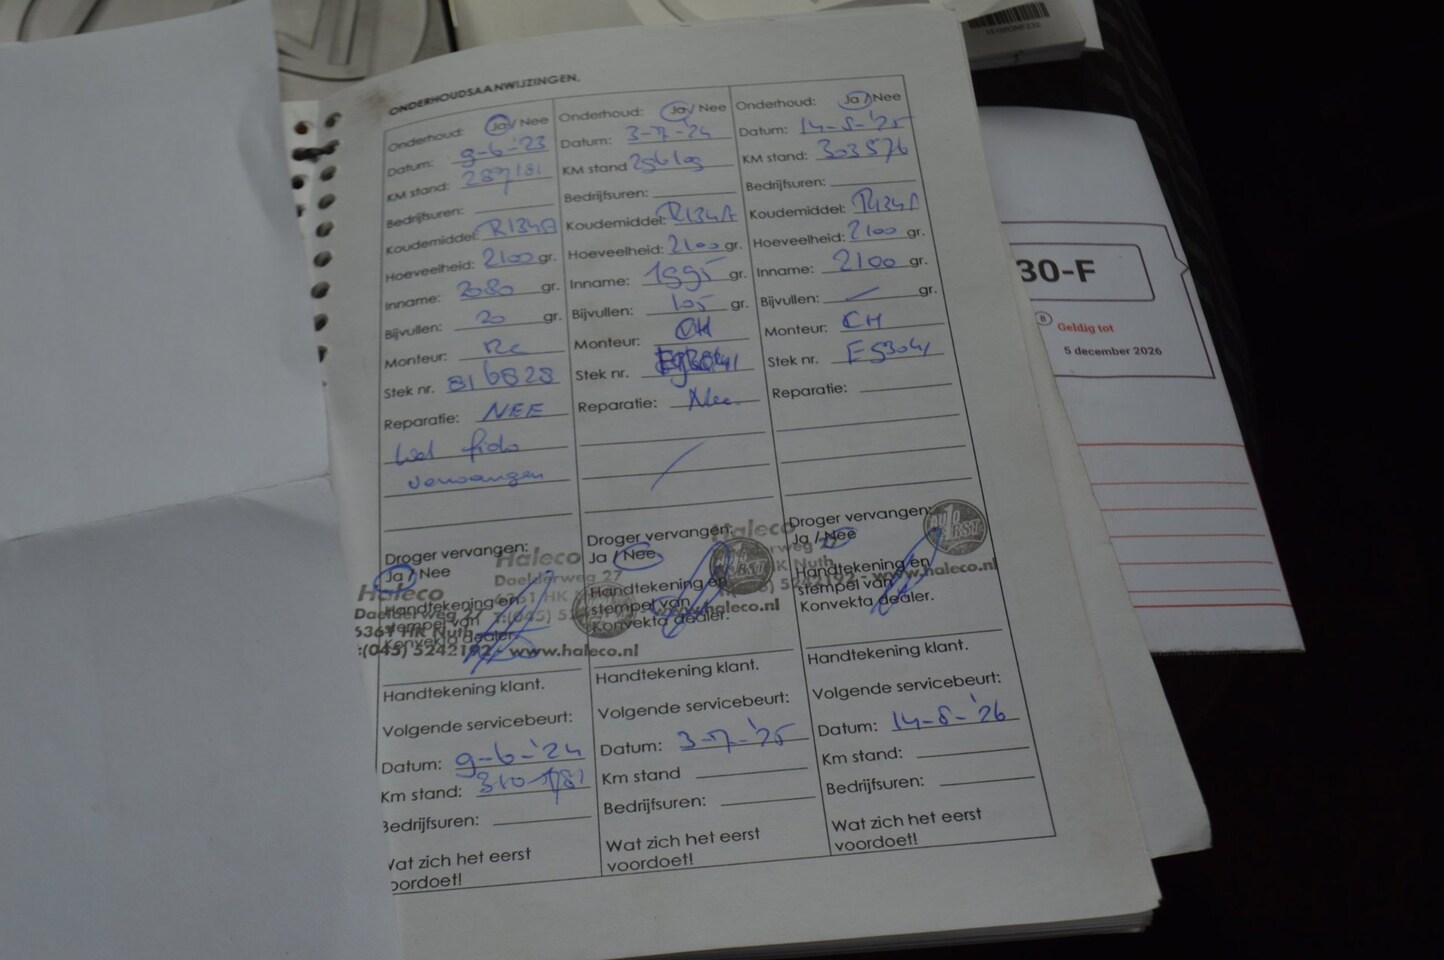 ONDERHOUDSAANWIJZINGEN.
Onderhoud: Ja / Nee
Datum: 9-6-'23
KM stand: 287181
Bedrijfsuren:
Koudemiddel: R134A
Hoeveelheid: 2100 gr.
Inname: 2080 gr.
Bijvullen: 20 gr.
Monteur: Rc
Stek nr. 816828
Reparatie: NEE
Wel
vervangen
Droger vervangen:
Ja / Nee
Handtekening en
stempel van
Konvekta dealer.
Haleco
Daelderweg 27
6361 HK Nuth
:(045) 5242192 - www.haleco.nl
Handtekening klant.
Volgende servicebeurt:
Datum: 9-6-'24
Km stand: 310181
Bedrijfsuren:
Wat zich het eerst
voordoet!
Onderhoud: Ja / Nee
Datum: 3-7-'24
KM stand 296109
Bedrijfsuren:
Koudemiddel: R134A
Hoeveelheid: 2100 gr.
Inname: 1995 gr.
Bijvullen: 105 gr.
Monteur: CH
Stek nr.
Reparatie: Nee
Droger vervangen:
Ja / Nee
Handtekening en
stempel van
Konvekta dealer.
Haleco
Daelderweg 27
6361 HK
T:(045) 5
www.haleco.nl
Handtekening klant.
Volgende servicebeurt:
Datum: 3-7-'25
Km stand
Bedrijfsuren:
Wat zich het eerst
voordoet!
Onderhoud: Ja / Nee
Datum: 14-5-'25
KM stand: 303576
Bedrijfsuren:
Koudemiddel: R134A
Hoeveelheid: 2100 gr.
Inname: 2100 gr.
Bijvullen: gr.
Monteur: CH
Stek nr. E53041
Reparatie:
Droger vervangen:
Ja / Nee
Handtekening en
stempel van
Konvekta dealer.
Haleco
HK Nuth
5242192 - www.haleco.nl
AUTO
Handtekening klant.
Volgende servicebeurt:
Datum: 14-5-'26
Km stand:
Bedrijfsuren:
Wat zich het eerst
voordoet!
30-F
B
Geldig tot
5 december 2026